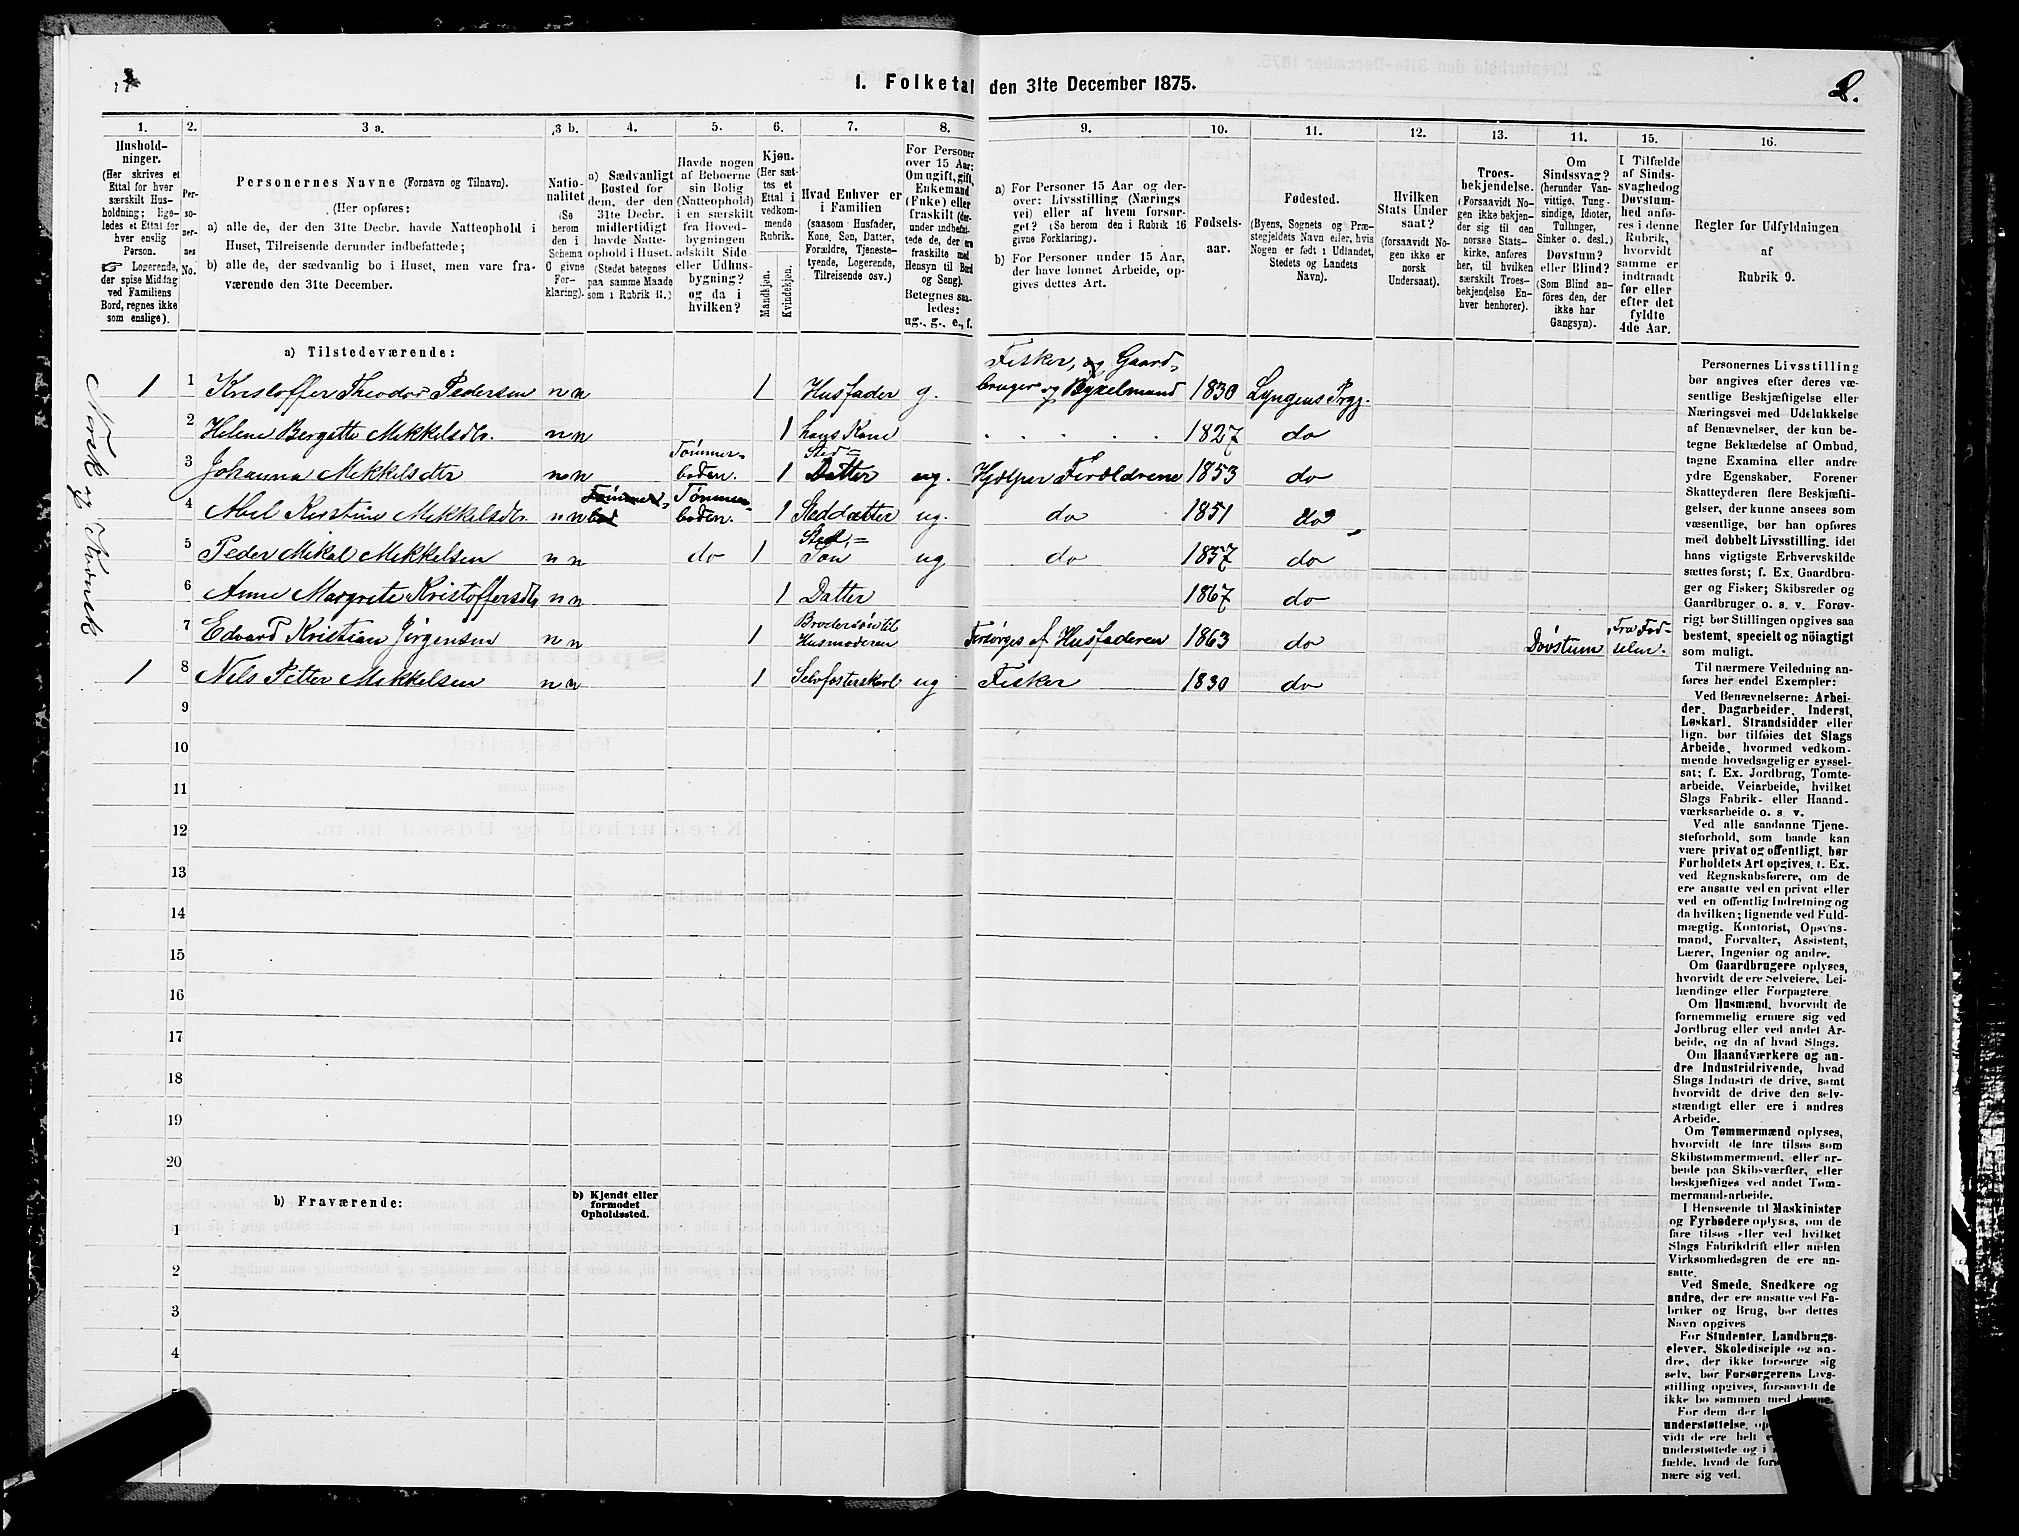 I. Folketal den 31te December 1875.
2.
1. 2. 3 a. 3 b. 4. 5. 6. 7. 8. 9. 10. 11. 12. 13. 14. 15. 16.
Hushold-
ninger.
(Her skrives et
Ettal for hver
særskilt Hus-
holdning; lige-
ledes et Ettal for
hver enslig
Person.
☞ Logerende,
der spise Middag
ved Familiens
Bord, regnes ikke
som enslige).
Per-
so-
ner-
nes
No.
Personernes Navne (Fornavn og Tilnavn).
(Her opføres:
a) alle de, der den 31te Decbr. havde Natteophold i
Huset, Tilreisende derunder indbefattede;
b) alle de, der sædvanlig bo i Huset, men vare fra-
værende den 31te December.
Natio-
nalitet
(Se
herom
den i
Schema
O givne
For-
klaring).
a) Sædvanligt
Bosted for
dem, der den
31te Decbr.
midlertidigt
havde Natte-
ophold i Huset.
(Stedet betegnes
paa samme Maade
som i Rubrik 11.)
Havde nogen
af Beboerne
sin Bolig
(Natteophold)
i en særskilt
fra Hoved-
bygningen
adskilt Side-
eller Udhus-
bygning?
og da i
hvilken?
Kjøn.
(Her sæt-
tes et
Ettal i
vedkom-
mende
Rubrik.
Mandkjøn.
Kvindekjøn.
Hvad Enhver er
i Familien
(saasom Husfader,
Kone, Søn, Datter,
Forældre, Tjeneste-
tyende, Logerende,
Tilreisende osv.)
For Personer
over 15 Aar:
Om ugift, gift,
Enkemand
(Enke) eller
fraskilt (der-
under indbefat-
tede de, der ere
fraskilte med
Hensyn til Bord
og Seng).
Betegnes saa-
ledes:
ug., g., e., f.
a) For Personer 15 Aar og der-
over: Livsstilling (Nærings
vei) eller af hvem forsør-
get? (Se herom den i Rubrik 16
givne Forklaring).
b) For Personer under 15 Aar,
der have lønnet Arbeide, op-
gives dettes Art.
Fødsels-
aar.
Fødested.
(Byens, Sognets og Præ-
stegjeldets Navn eller, hvis
Nogen er født i Udlandet,
Stedets og Landets
Navn).
Hvilken
Stats Under
saat?
(forsaavidt No-
gen ikke er
norsk
Undersaat).
Troes-
bekjendelse.
(Forsaavidt No-
gen ikke bekjen-
der sig til den
norske Stats-
kirke, anføres
her, til hvilken
særskilt Troes-
bekjendelse En-
hver henhører).
Om
Sindssvag?
(herunder Van-
vittige, Tung-
sindige, Idioter,
Tullinger,
Sinker o. desl.)
Døvstum?
eller Blind?
(Som Blind an-
føres den, der
ikke har
Gangsyn).
I Tilfælde
af Sinds-
svaghed og
Døvstum-
hed anfø-
res i denne
Rubrik,
hvorvidt
samme er
indtraadt
før eller
efter det
fyldte
4de Aar.
Regler for Udfyldningen
af
Rubrik 9.
a) Tilstedeværende:
Norsk og Kvænsk
Fisker, og Gaard-
1 1 Kristoffer Theodor Pedersen n n 1 Husfader g. bruger og Byxelmand 1830 Lyngens Prgj.
2 Helene Bergette Mikkelsdtr. n n 1 hans Kone 1827 do
3 Johanna Mikkelsdtr n n Tømmer-
boden. 1 Sted=
Datter ug. Hjælper Forældrene 1853 do
4 Abel Kirstine Mikkelsdtr. n n Tømmer-
boden. 1 Steddatter ug. do 1851 do
5 Peder Mikal Mikkelsen n n do 1 Sted=
Søn ug do 1857 do
6 Anne Margrete Kristoffersdtr n n 1 Datter 1867 do
7 Edvard Kristian Jørgensen n n 1 Brodersøn til
Husmoderen Forsørges af Husfaderen 1863 do Døvstum Fra Fød-
selen.
1 8 Nils Petter Mikkelsen n n 1 Selvfosterskarl ug Fisker 1830 do
9
10
11
12
13
14
15
16
17
18
19
20
b) Fraværende:
b) Kjendt eller
formodet
Opholdssted.
1
2
3
4
5
Personernes Livsstilling
bør angives efter deres væ-
sentlige Beskjæftigelse eller
Næringsvei med Udelukkelse
af Benævnelser, der kun be-
tegne Beklædelse af Ombud,
tagne Examina eller andre
ydre Egenskaber. Forener
Skatteyderen flere Beskjæfti-
gelser, der kunne ansees som
væsentlige, bør han opføres
med dobbelt Livsstilling, idet
hans vigtigste Erhvervskilde
sættes først; f. Ex. Gaardbru-
ger og Fisker; Skibsreder og
Gaardbruger o. s. v. Forøv-
rigt bør Stillingen opgives saa
bestemt, specielt og nøiagtigt
som muligt.
Til nærmere Veiledning an-
føres her endel Exempler:
Ved Benævnelserne: Arbei-
der, Dagarbeider, Inderst,
Løskarl, Strandsidder eller
lign. bør tilføies det Slags
Arbeide, hvormed vedkom-
mende hovedsagelig er syssel-
sat; f. Ex. Jordbrug, Tomte-
arbeide, Veiarbeide, hvilket
Slags Fabrik- eller Haand-
værksarbeide o. s. v.
Ved alle saadanne Tjene-
steforhold, som baade kan
være privat og offentligt, bør
Forholdets Art opgives, f. Ex.
ved Regnskabsførere, om de
ere ansatte ved en privat eller
ved en offentlig Indretning og
da hvilken; lignende ved Fuld-
mægtig, Kontorist, Opsyns-
mand, Forvalter, Assistent,
Lærer, Ingeniør og andre.
Om Gaardbrugere oplyses,
hvorvidt de ere Selveiere, Lei-
lændinge eller Forpagtere.
Om Husmænd, hvorvidt de
fornemmelig ernære sig ved
Jordbrug eller ved andet Ar-
beide, og da af hvad Slags.
Om Haandværkere og an-
dre Industridrivende, hvad
Slags Industri de drive, samt
hvorvidt de drive den selv-
stændigt eller ere i andres
Arbeide.
Om Tømmermænd oplyses,
hvorvidt de fare tilsøs som
Skibstømmermænd, eller ar-
beide paa Skibsværfter, eller
beskjæftiges ved andet Tøm-
mermandsarbeide.
I Henseende til Maskinister
og Fyrbødere oplyses, om de
fare tilsøs eller ved hvilket
Slags Fabrikdrift eller anden
Virksomhedsgren de ere an-
satte.
Ved Smede, Snedkere og
andre, der ere ansatte ved Fa-
briker og Brug, bør dettes
Navn opgives.
For Studenter, Landbrugs-
elever, Skoledisciple og an-
dre, der ikke forsørge sig
selv, bør Forsørgerens Livs-
stilling opgives, forsaavidt de
ikke bo sammen med denne.
For dem, der
understøttelse,
vidt de ere helt
understøttede og i
fælde, hvad de
nære sig ved.